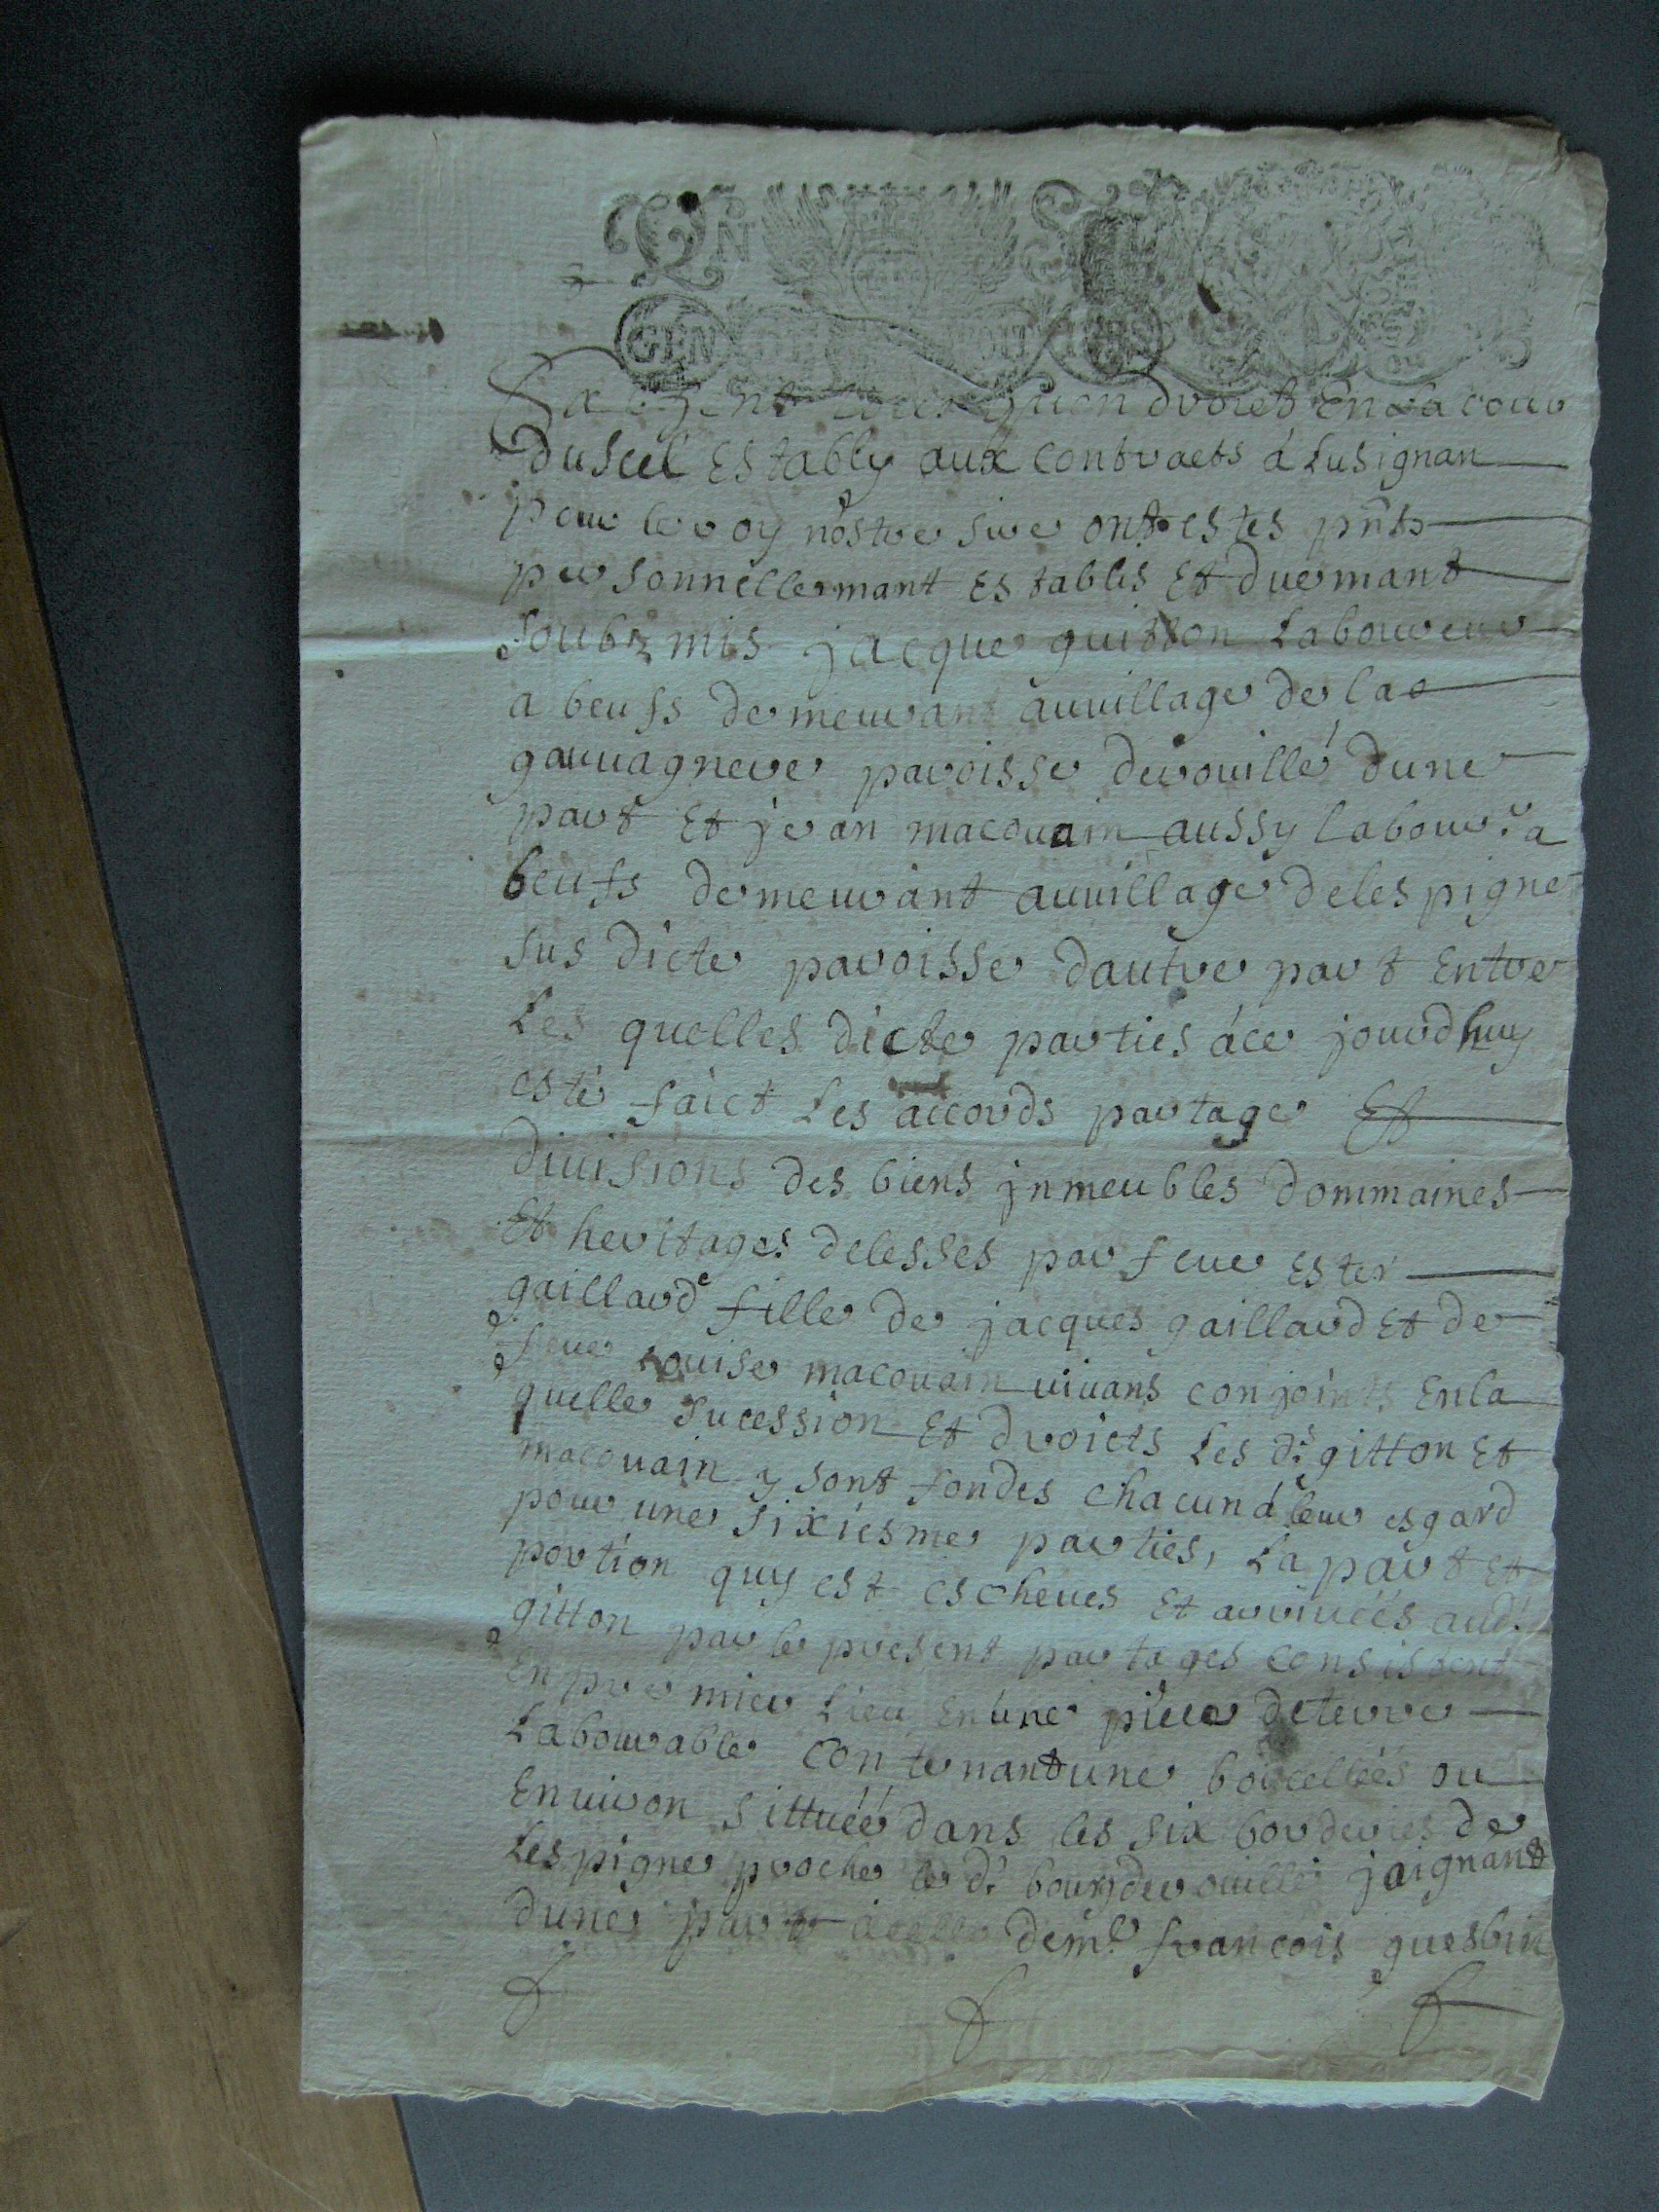 VN
GEN DE
Sachent tous quen droict En La cour
du Scel Estably aux contracts á Lusignan
pour le roy nostre sire ont estes pñts
personnellemant Establis Et duemant
soubzmis jacque guitton Laboureur
a beufs demeurant auuillage de la
gauuagnere paroisse de rouillé dune
part Et jean macouain aussy labourr a
beufs demeurant auuillage de lespigne
sus dicte paroisse dautre part Entre
Les quelles dicte parties á ce jourdhuy
esté faict Les accords partage Et
diuisions des biens jnmeubles dommaines
Et heritages delesses par feue ester
gaillarde fille de jacques gaillard Et de
feue Louise macouain uiuans conjoints En la
quelle sucession Et droicts Les ds gitton Et
macouain y sont fondes chacun á leur esgard
pour une sixiesme parties, La part Et
portion quy est escheues Et arriuéés audt
gitton par le present partages consistent
En premier Lieu En une piece de terre
Labourable contenant une boicellées ou
Enuiron sittuéé dans les six borderies de
Lespigne proche le dt bourg de rouillé joignant
dune part a celle de mr francois guesbin